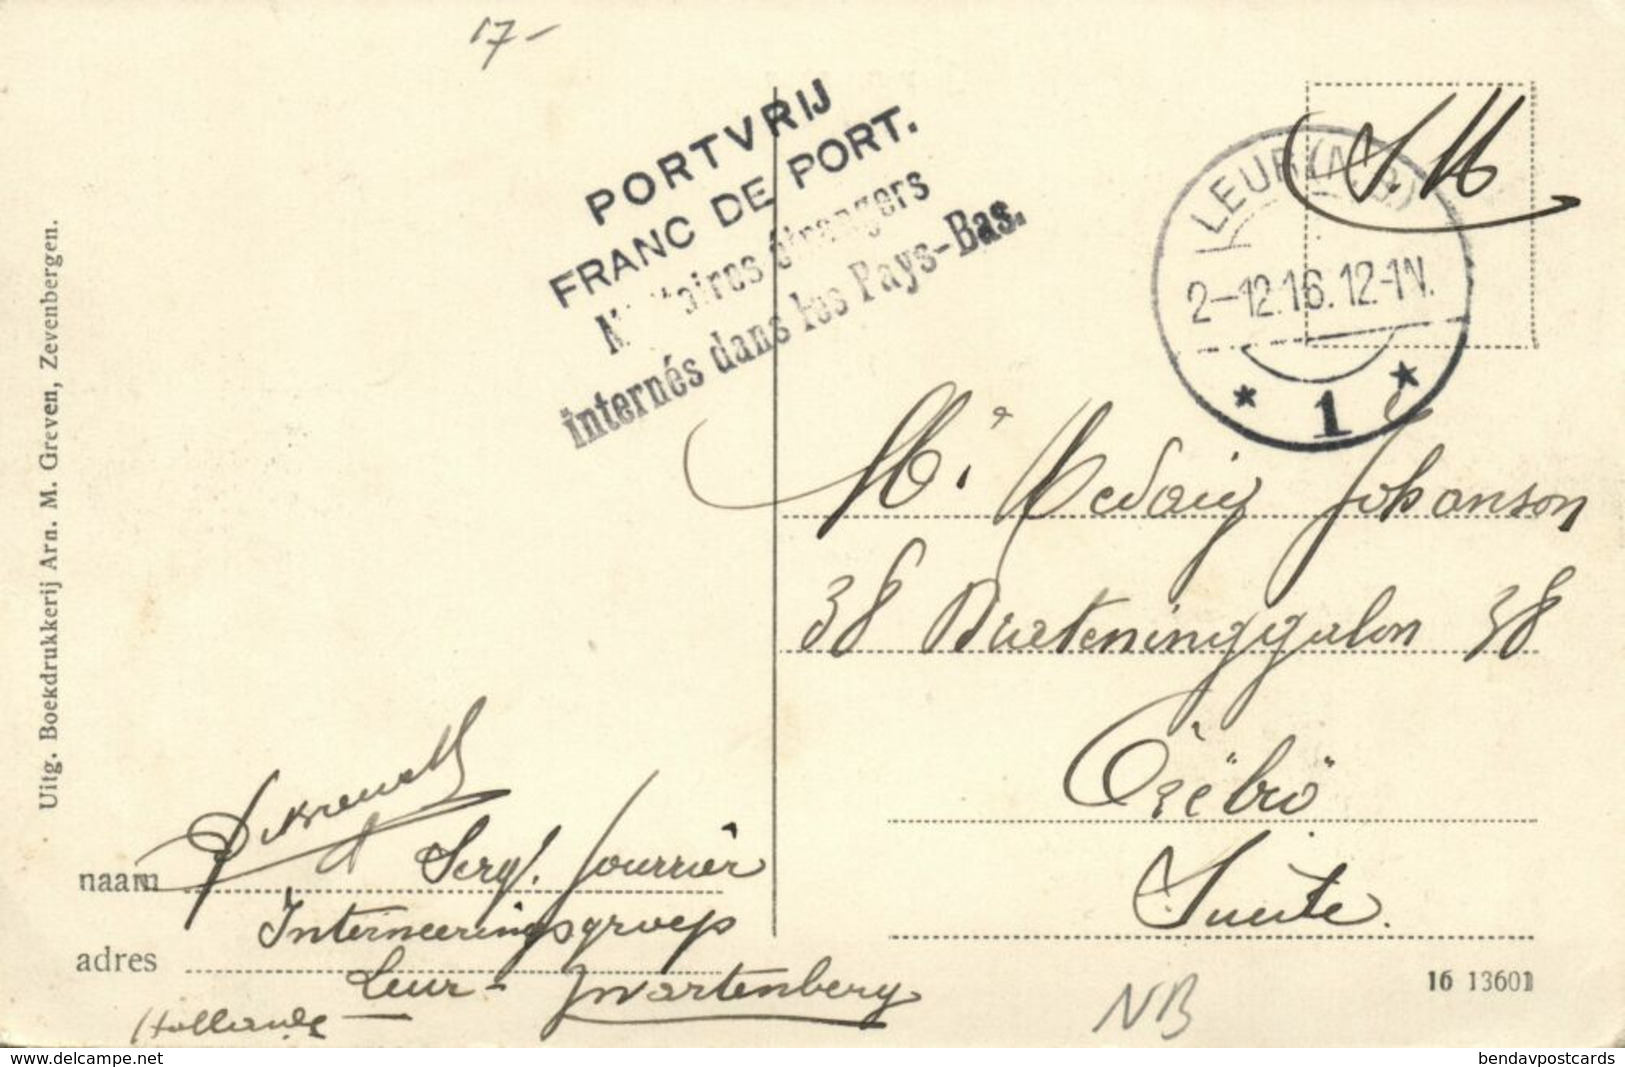 17-
PORTVRIJ
FRANC DE PORT.
Militaires étrangers
internés dans les Pays-Bas.
S.M
LEUR (N.B)
2-12.16.12-1N.
* 1 *
Uitg. Boekdrukkerij Arn. M. Greven, Zevenbergen.
Johanson
38 38
Örëbrö
Suède.
naam
Serg! fourrier
Interneeringsgroep
adres
Leur- Zwartenberg
Hollande
16 13601
NB
www.delcampe.net
bendavpostcards